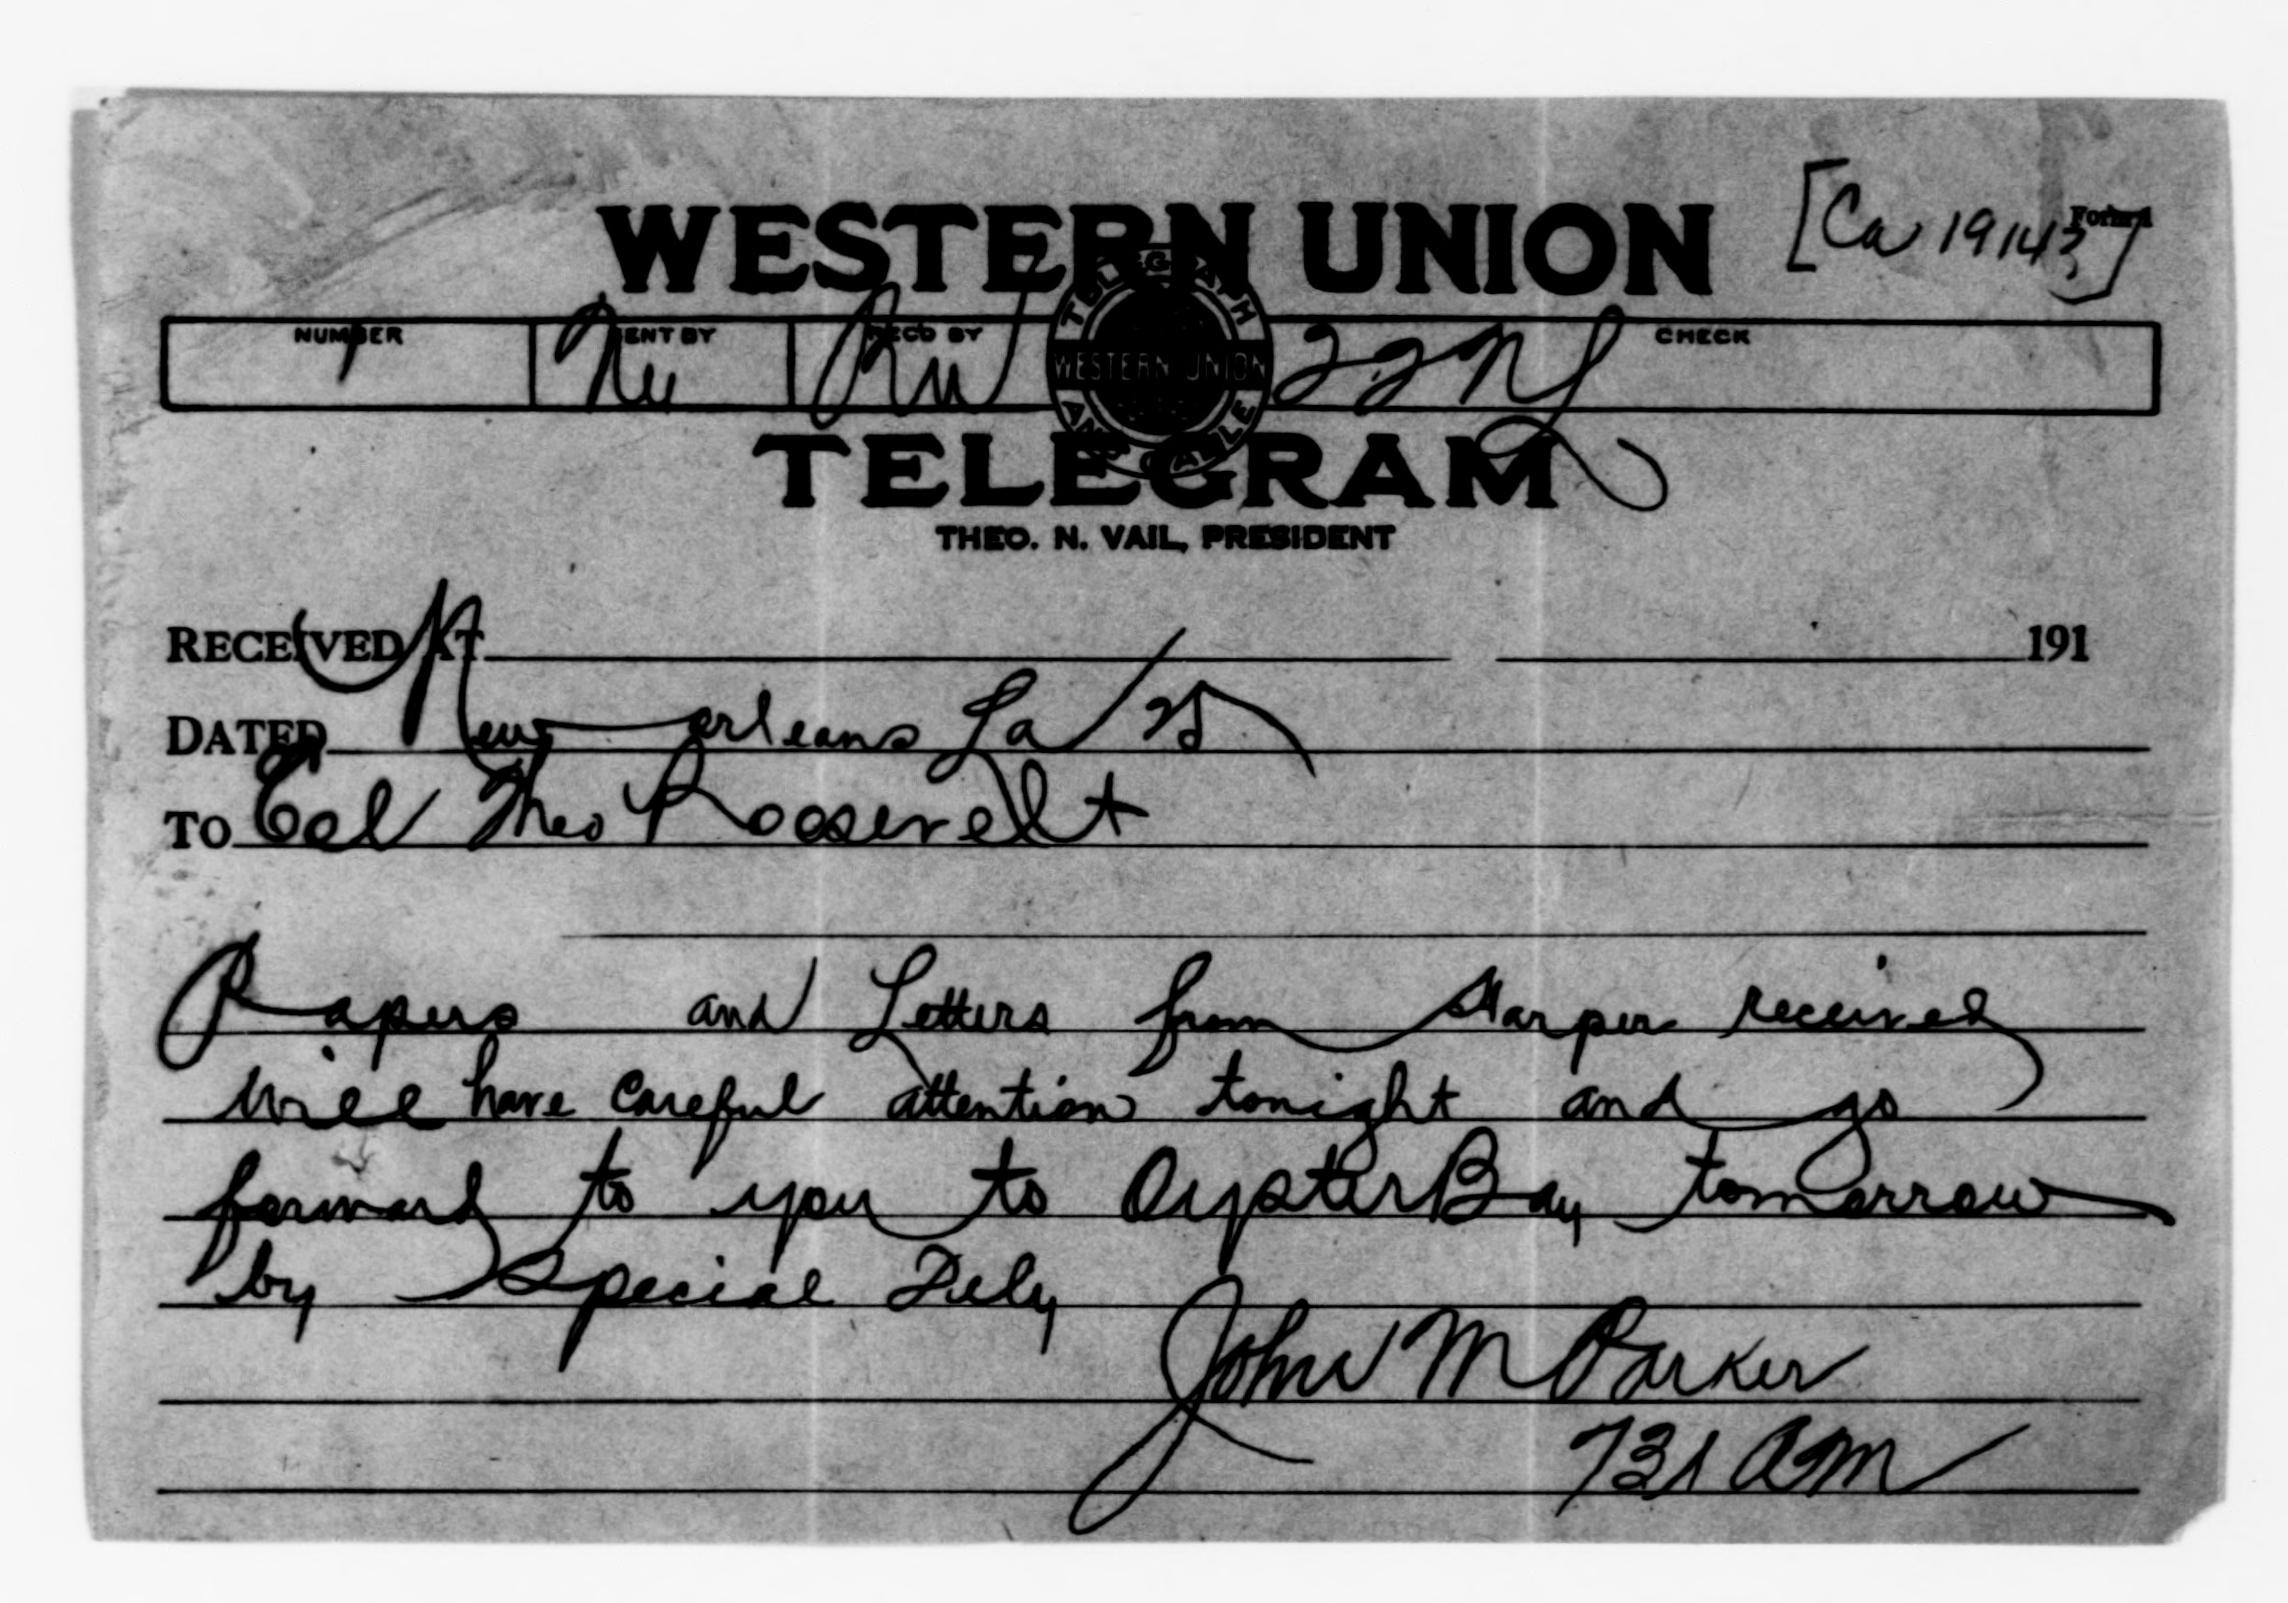 WESTERN UNION
[Ca 1914?]
Form 1
NUMBER SENT BY REC'D BY CHECK
1 22 NL
TELEGRAPH AND CABLE
WESTERN UNION
TELEGRAM
THEO. N. VAIL, PRESIDENT
RECEIVED AT 191
DATED New orleans La
TO Col Theo Roosevelt
Papers and Letters from Harper received
will have careful attention tonight and go
forward to you to Oyster Bay tomorrow
by special Dely
John M Parker
731 am